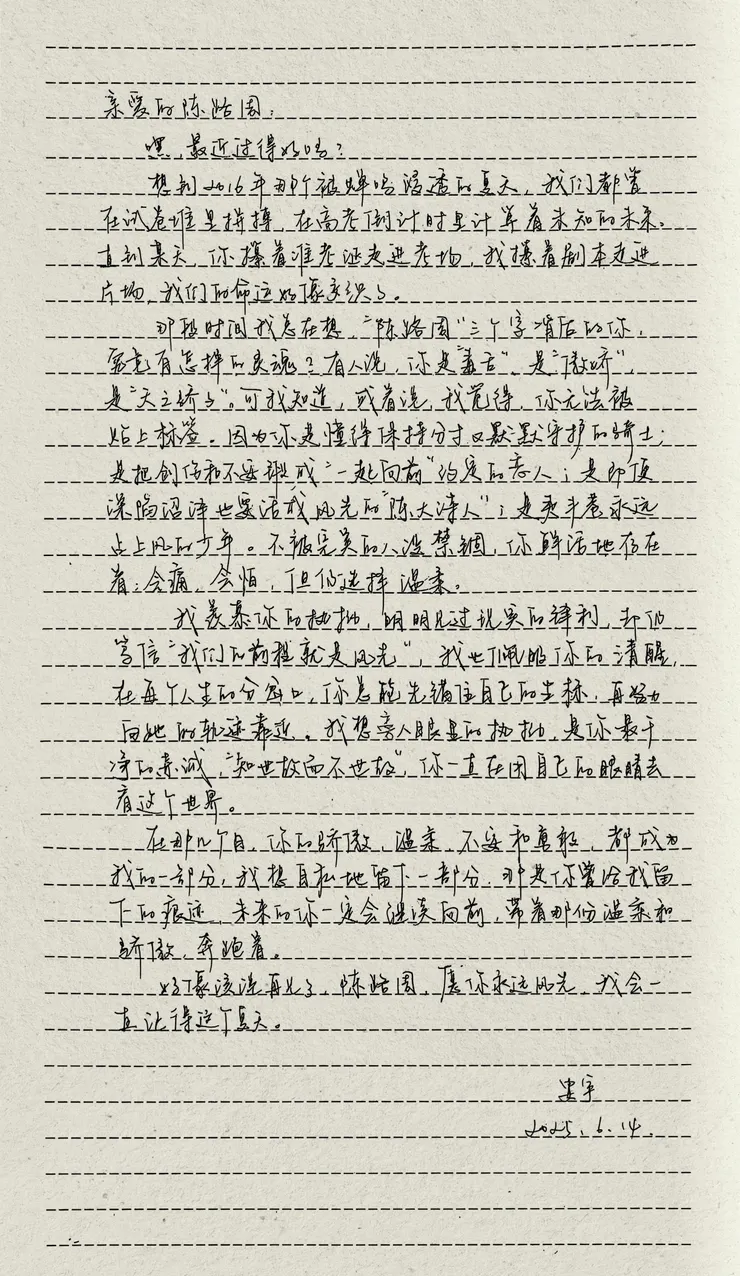 亲爱的陈路周：
嘿，最近过得好吗？
想到2016年那个被蝉鸣浸透的夏天，我们都曾
在试卷堆里拼搏，在高考倒计时里计算着未知的未来。
直到某天，你攥着准考证走进考场，我攥着剧本走进
片场，我们的命运好像交织了。
那段时间我总在想，“陈路周”三个字背后的你，
究竟有怎样的灵魂？有人说，你是“毒舌”，是“傲娇”，
是“天之骄子”。可我知道，或者说，我觉得，你无法被
贴上标签。因为你是懂得保持分寸又默默守护的骑士；
是把创伤和不安酿成“一起向前”约定的恋人；是即使
深陷沼泽也要活成风光的“陈大诗人”；是卖斗卷永远
占上风的少年。不被完美的人设禁锢，你鲜活地存在
着：会痛，会怕，但仍选择温柔。
我羡慕你的执拗，明明见过现实的锋利，却仍
笃信“我们的前程就是风光”，我也佩服你的清醒，
在每个人生的分岔口，你总能先锚住自己的坐标，再努力
向她的轨迹靠近。我想旁人眼里的执拗，是你最干
净的赤诚，“知世故而不世故”，你一直在用自己的眼睛去
看这个世界。
在那几个月，你的骄傲，温柔，不安和勇敢，都成为
我的一部分，我想自私地留下一部分，那是你曾给我留
下的痕迹，未来的你一定会继续向前，带着那份温柔和
骄傲，奔跑着。
好像该说再见了，陈路周，愿你永远风光，我会一
直记得这个夏天。
安宇
2025.6.14.